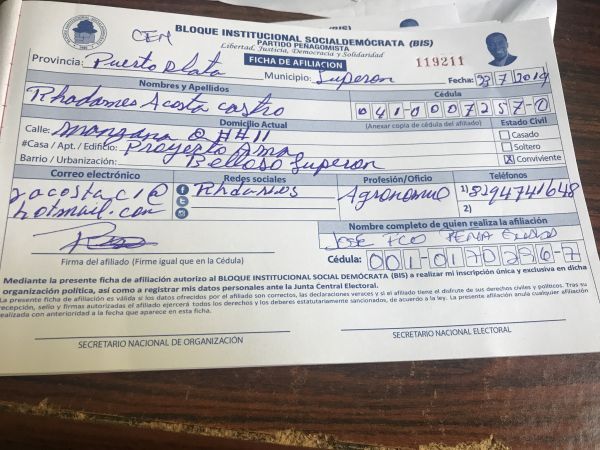 CEN
BLOQUE INSTITUCIONAL SOCIALDEMÓCRATA (BIS)
PARTIDO PEÑAGOMISTA
Libertad, Justicia, Democracia y Solidaridad
FICHA DE AFILIACION
119211
Provincia: Puerto Plata Municipio: Luperon Fecha: 7 2019
Nombres y Apellidos Cédula
Rhadames Acosta Castro 041-0007257-0
Domicilio Actual (Anexar copia de cédula del afiliado) Estado Civil
Calle: Manzana @ ## 11 Casado
#Casa / Apt. / Edificio: Proyecto Ama Soltero
Barrio / Urbanización: Belloso Luperon X Conviviente
Correo electrónico Redes sociales Profesión/Oficio Teléfonos
racostac1@ Agronomo 1) 8294741648
hotmail.com 2)
Nombre completo de quien realiza la afiliación
JOSE FCO PEÑA
Firma del afiliado (Firme igual que en la Cédula) Cédula: 001-0170286-7
Mediante la presente ficha de afiliación autorizo al BLOQUE INSTITUCIONAL SOCIAL DEMÓCRATA (BIS) a realizar mi inscripción única y exclusiva en dicha
organización política, así como a registrar mis datos personales ante la Junta Central Electoral.
La presente ficha de afiliación es válida si los datos ofrecidos por el afiliado son correctos, las declaraciones veraces y si el afiliado tiene el disfrute de sus derechos civiles y políticos. Tras su
recepción, sello y firmas autorizadas el afiliado ejercerá todos los derechos y los deberes estatutariamente sancionados, de acuerdo a la ley. La presente afiliación anula cualquier afiliación
realizada con anterioridad a la fecha que aparece en esta ficha.
SECRETARIO NACIONAL DE ORGANIZACIÓN SECRETARIO NACIONAL ELECTORAL